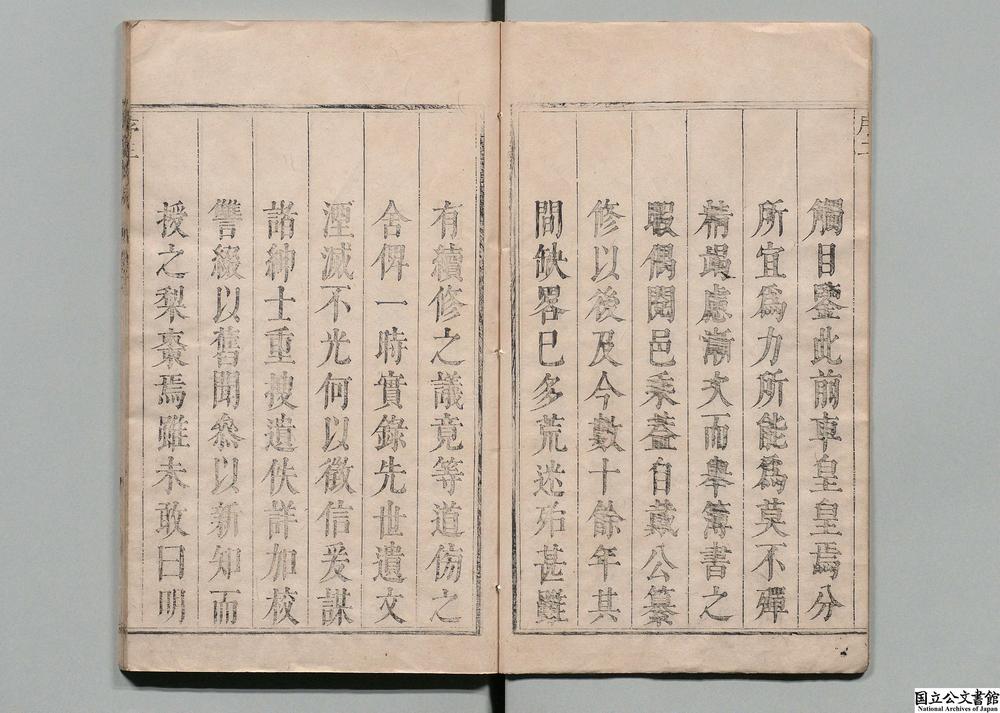 序二
觸目鑒此前車皇皇焉分
所宜為力所能為莫不殫
精竭慮漸次而舉簿書之
暇偶閱邑乘蓋自戴公纂
修以後及今數十餘年其
間缺畧已多荒迷殆甚雖
有續修之議竟等道傍之
舍俾一時實錄先世遺文
湮滅不光何以徵信爰謀
諸紳士重搜遺佚詳加校
讐綴以舊聞叅以新知而
授之梨棗焉雖未敢曰明
国立公文書館
National Archives of Japan